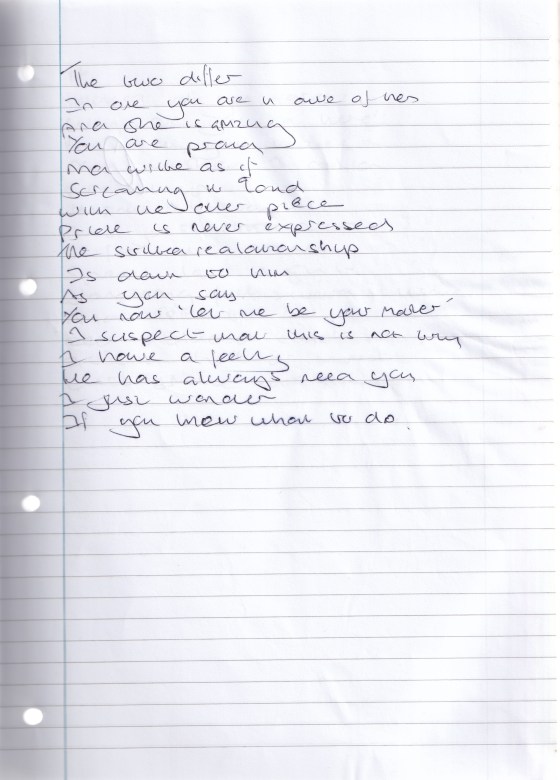 The two differ
In one you are in awe of her
And she is amzing
You are proud
as if
Screaming is loud
With the over piece
Pride is never expressed
The realationship
Is down to him
As you say
You now 'let me be your maker'
I suspect that this is not why
I have a feeling
He has always need you
I just wonder
If you know what to do.